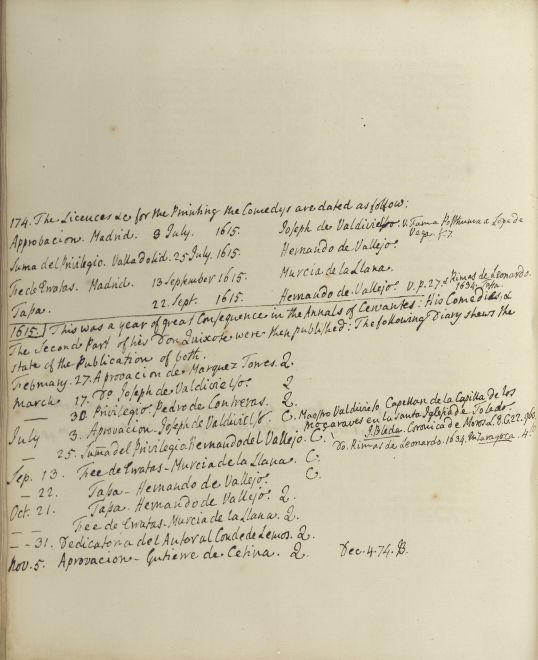 174. The Licences &c for the Printing the Comedys are dated as follow:
Approbacion. Madrid. 3 July. 1615. Joseph de Valdivielso. v. Fama Posthuma a Lope de Vega. f. 7.
Suma del Privilegio. Valladolid. 25 July. 1615. Hernando de Vallejo.
Fee de Erratas. Madrid. 13 September 1615. Murcia de la Llana.
Tassa. 22. Sept. 1615. Hernando de Vallejo. v. p. 27. Rimas de Leonardo. 1634. Tassa.
1615. This was a year of great Consequence in the Annals of Cervantes: His Comedies, &
The Second Part of his Don Quixote were then published: The following Diary shews the
state of the Publication of both.
February. 27. Aprovacion de Marquez Torres. Q.
March 17. Do Joseph de Valdivielso. Q
— 30. Privilegio. Pedro de Contreras. Q
July 3. Aprovacion. Joseph de Valdivielso. C. Maestro Valdivielso Capellan de la Capilla de los Moçaraves en la Santa Iglesia de Toledo.
— 25. Suma del Privilegio Hernando del Vallejo. C. J. Bleda. Coronica de Moros. L. 8. C. 22. 960.
Sep. 13. Fee de Erratas - Murcia de la Llana. C. Do. Rimas de Leonardo. 1634. en Zaragoça. 4.
— 22. Tassa - Hernando de Vallejo. C
Oct. 21. Tassa. Hernando de Vallejo. Q.
— — Fee de Erratas - Murcia de la Llana. Q.
— - 31. Dedicatoria del Autor al Conde de Lemos. Q.
Nov. 5. Aprovacion - Gutierre de Cetina. Q. Dec. 4. 74. B.